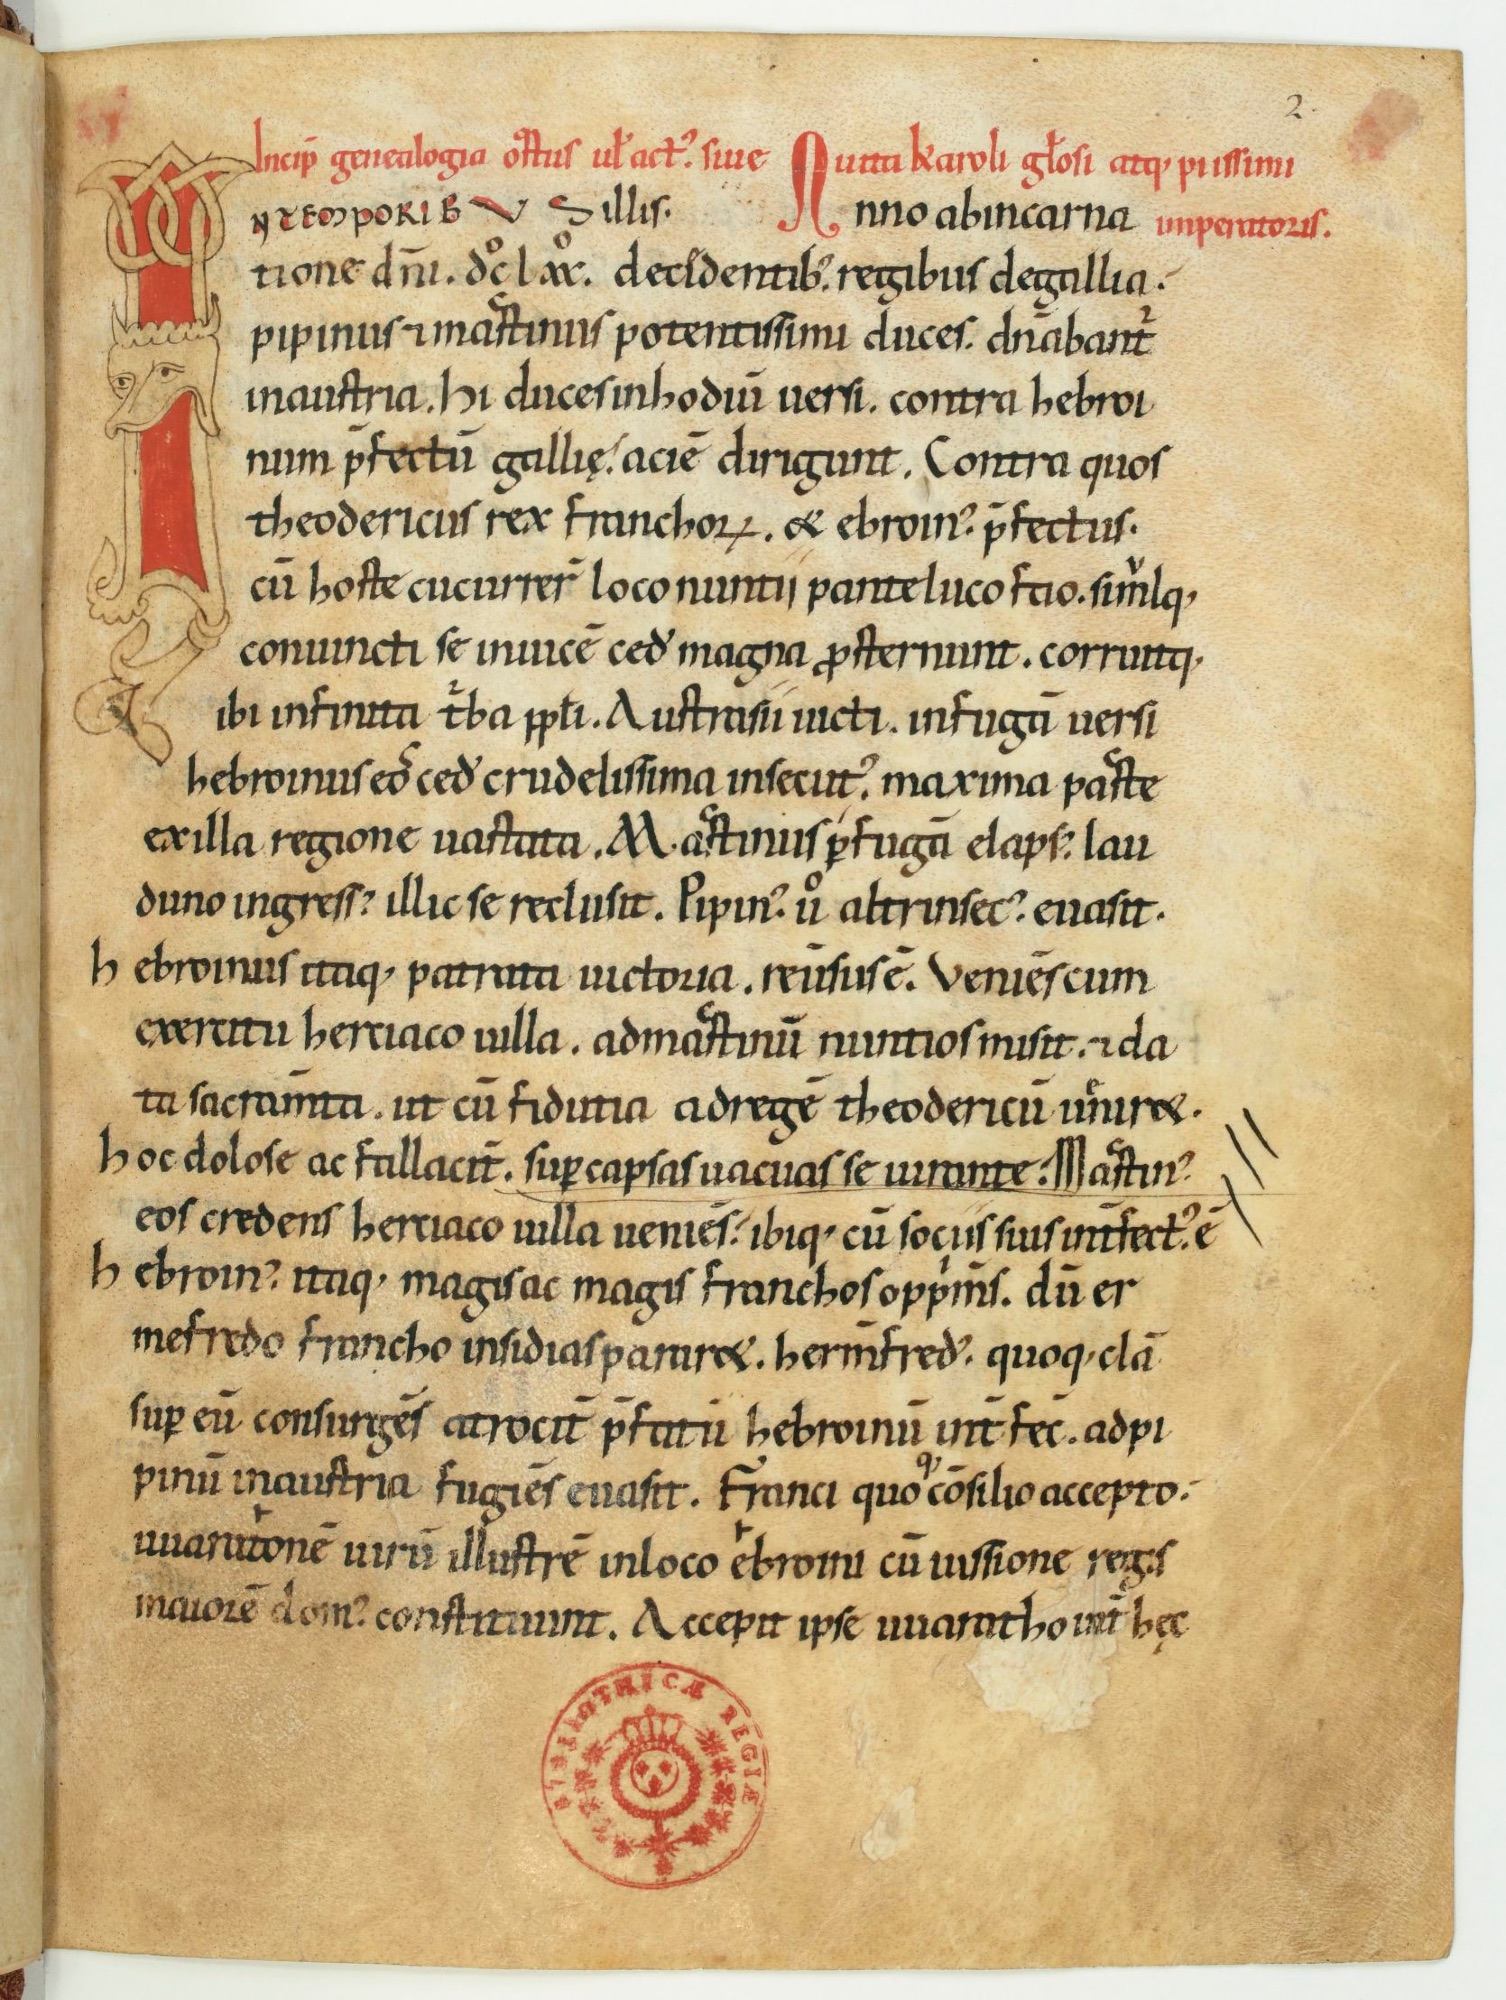 2.
Incip̄ genealogia ortus ul̄ actꝰ. siue uita karoli gl̄osi atq; piissimi
imperatoris.
IN TEMPORIBVS illis. Anno ab incarna
tione dn̄i. dc̊ lxx̊. decidentibꝰ. regibus de gallia.
pipinus ⁊ martinus potentissimi duces. dn̄abant᷑
in austria. hi duces in hodiū uersi. contra hebroi
num p̄fectū gallię. aciē dirigunt. Contra quos
theodericus rex franchoꝝ. & ebroinꝰ. p̄fectus.
cū hoste cucurrer̄ loco nuntii pante luco fao. simulq;
conuincti se inuicē ced̄ magna ꝓsternunt. corruitq;
ibi infinita t᷑ba ppl̄i. Austrasii uicti. in fugā uersi
hebroinus eos ced̄ crudelissima insecutꝰ. maxima parte
ex illa regione uastata. Martinus ꝑ fugā elapsꝰ. lau
duno ingressꝰ illic se reclusit. Pipinꝰ. ů altrinsecꝰ. euasit.
hebroinus itaq; patrata uictoria. reūsus ē. Veniēs cum
exercitu herciaco uilla. ad martinū nuntios misit. ⁊ da
ta sacram̄ta. ut cū fidutia ad regē theodericū uenir&.
hoc dolose ac fallacit̄. suꝑ capsas uacuas se iurante. Martinꝰ.
eos credens herciaco uilla ueniēs. ibiq; cū sociis suis int̄fectꝰ. ē
hebroinꝰ. itaq; magis ac magis franchos opprim̄s. dū er
mefredo francho insidias parar&. herm̄fredꝰ. quoq; clā
suꝑ eū consurgēs atrocit̄ p̄fatū hebroinū int̄fec̄. ad pi
pinū in austria fugiēs euasit. Franci quoq; cōsilio accepto.
uuaratonē uirū illustrē in loco ebroini cū iussione regis
maiorē domꝰ. constituunt. Accepit ipse uuaratho int̄ hęc
BIBLIOTHECÆ REGIÆ